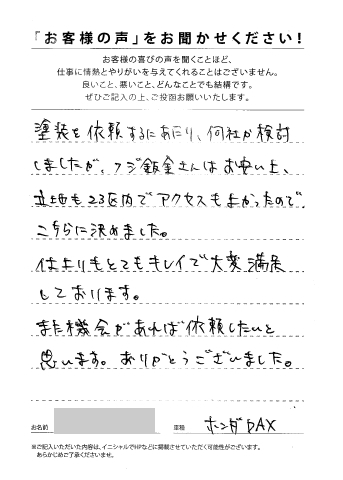 「お客様の声」をお聞かせください！
お客様の喜びの声を聞くことほど、
仕事に情熱とやりがいを与えてくれることはございません。
良いこと、悪いこと、どんなことでも結構です。
ぜひご記入の上、ご投函お願いいたします。
塗装を依頼するにあたり、何社か検討
しましたが、フジ鈑金さんはお安い上、
立地も23区内でアクセスもよかったので、
こちらに決めました。
仕上りもとてもキレイで大変満足
しております。
また機会があれば依頼したいと
思います。ありがとうございました。
お名前 車種 ホンダDAX
※ご記入いただいた内容は、イニシャルでHPなどに掲載させていただく可能性がございます。
あらかじめご了承くださいませ。